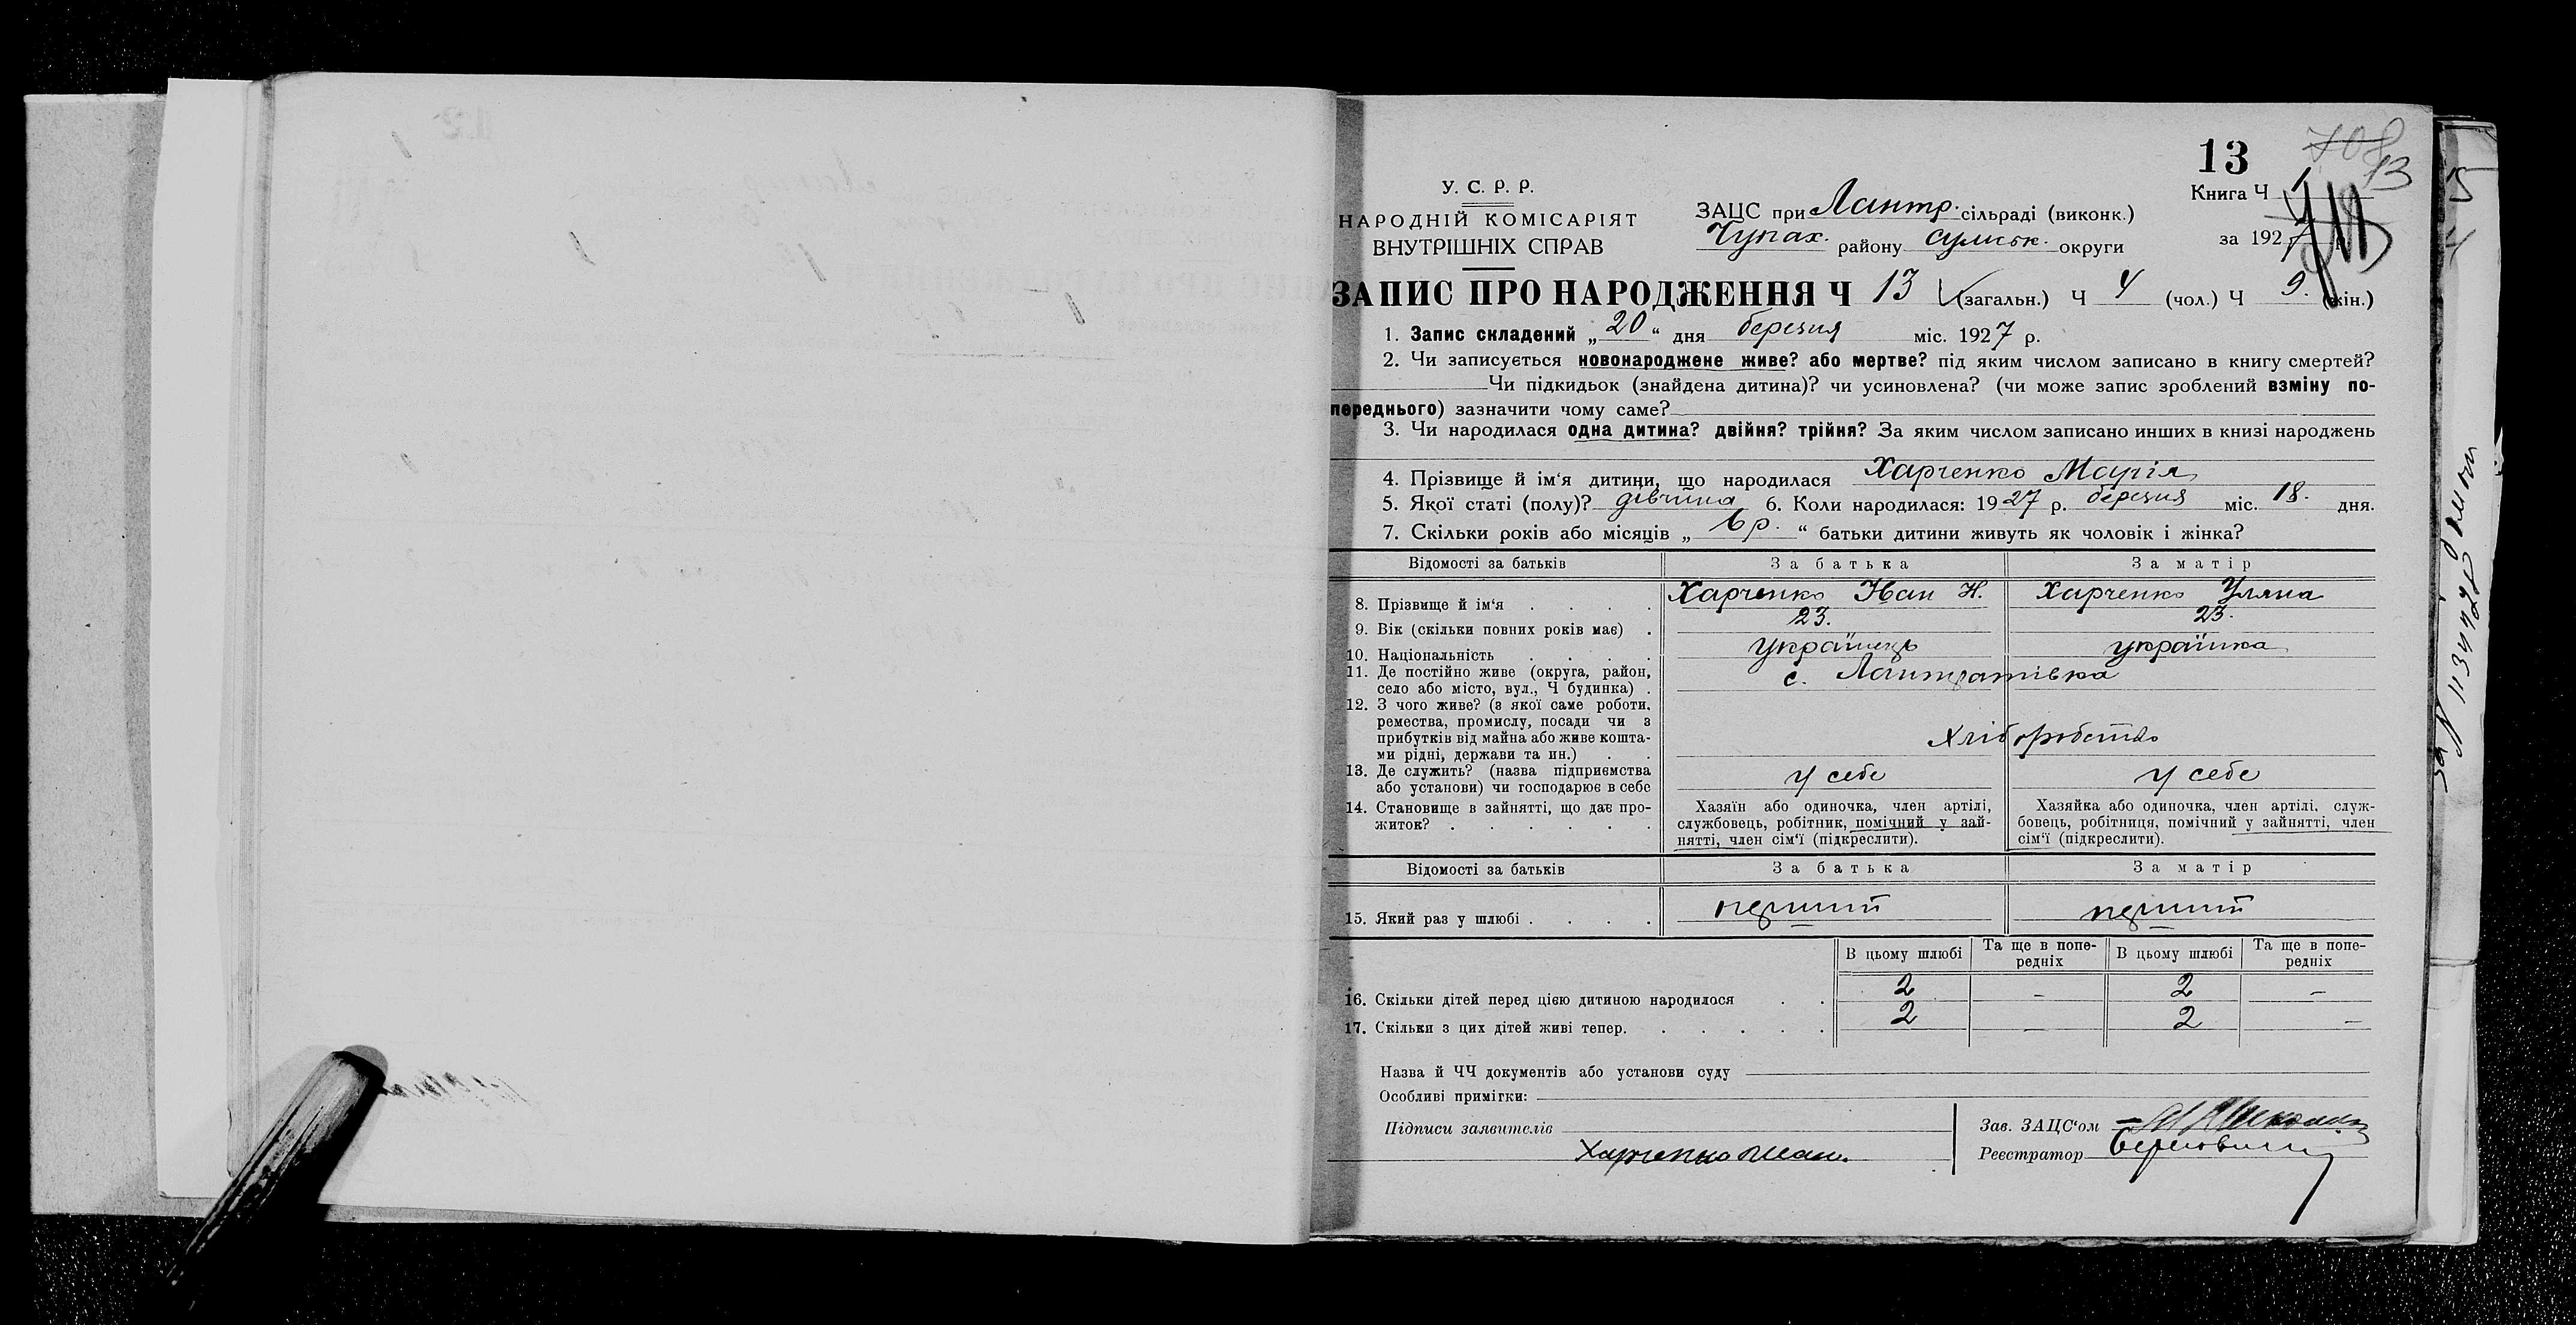 13
708
13
У. С. Р. Р.
НАРОДНІЙ КОМІСАРІЯТ
ВНУТРІШНІХ СПРАВ
Книга Ч 1
ЗАЦС при Лантр. сільраді (виконк.)
Чупах. району сумськ. округи
за 1927
ЗАПИС ПРО НАРОДЖЕННЯ Ч 13 (загальн.) Ч 4 (чол.) Ч 9. (жін.)
1. Запис складений „20“ дня березня міс. 1927 р.
2. Чи записується новонароджене живе? або мертве? під яким числом записано в книгу смертей?
Чи підкидьок (знайдена дитина)? чи усиновлена? (чи може запис зроблений взміну по-
переднього) зазначити чому саме?
3. Чи народилася одна дитина? двійня? трійня? За яким числом записано инших в книзі народжень
4. Прізвище й ім‘я дитини, що народилася Харченко Марія
5. Якої статі (полу)? дівчина 6. Коли народилася: 1927 р. березня міс. 18. дня.
7. Скільки років або місяців „ 6 р. “ батьки дитини живуть як чоловік і жінка?
Відомості за батьків За батька За матір
8. Прізвище й ім‘я . . . . Харченко Іван Н. Харченко Уляна
9. Вік (скільки повних років має) . 23. 23.
10. Національність . . . . українець українка
11. Де постійно живе (округа, район,
село або місто, вул., Ч будинка) . с. Лантратівка
12. З чого живе? (з якої саме роботи,
ремества, промислу, посади чи з
прибутків від майна або живе кошта-
ми рідні, держави та ин.) . . Хліборобство
13. Де служить? (назва підприємства
або установи) чи господарює в себе у себе у себе
14. Становище в зайнятті, що дає про-
житок? . . . . . .
Хазяїн або одиночка, член артілі,
службовець, робітник, помічний у зай-
нятті, член сім‘ї (підкреслити).
Хазяйка або одиночка, член артілі, служ-
бовець, робітниця, помічний у зайнятті, член
сім‘ї (підкреслити).
Відомості за батьків За батька За матір
15. Який раз у шлюбі . . . . перший перший
В цьому шлюбі Та ще в попе-
редніх В цьому шлюбі Та ще в попе-
редніх
16. Скільки дітей перед цією дитиною народилося . . 2 – 2 –
17. Скільки з цих дітей живі тепер. . . . . . 2 – 2 –
Назва й ЧЧ документів або установи суду
Особливі примігки:
Підписи заявителів
Харченко Иван.
Зав. ЗАЦС‘ом
Реєстратор